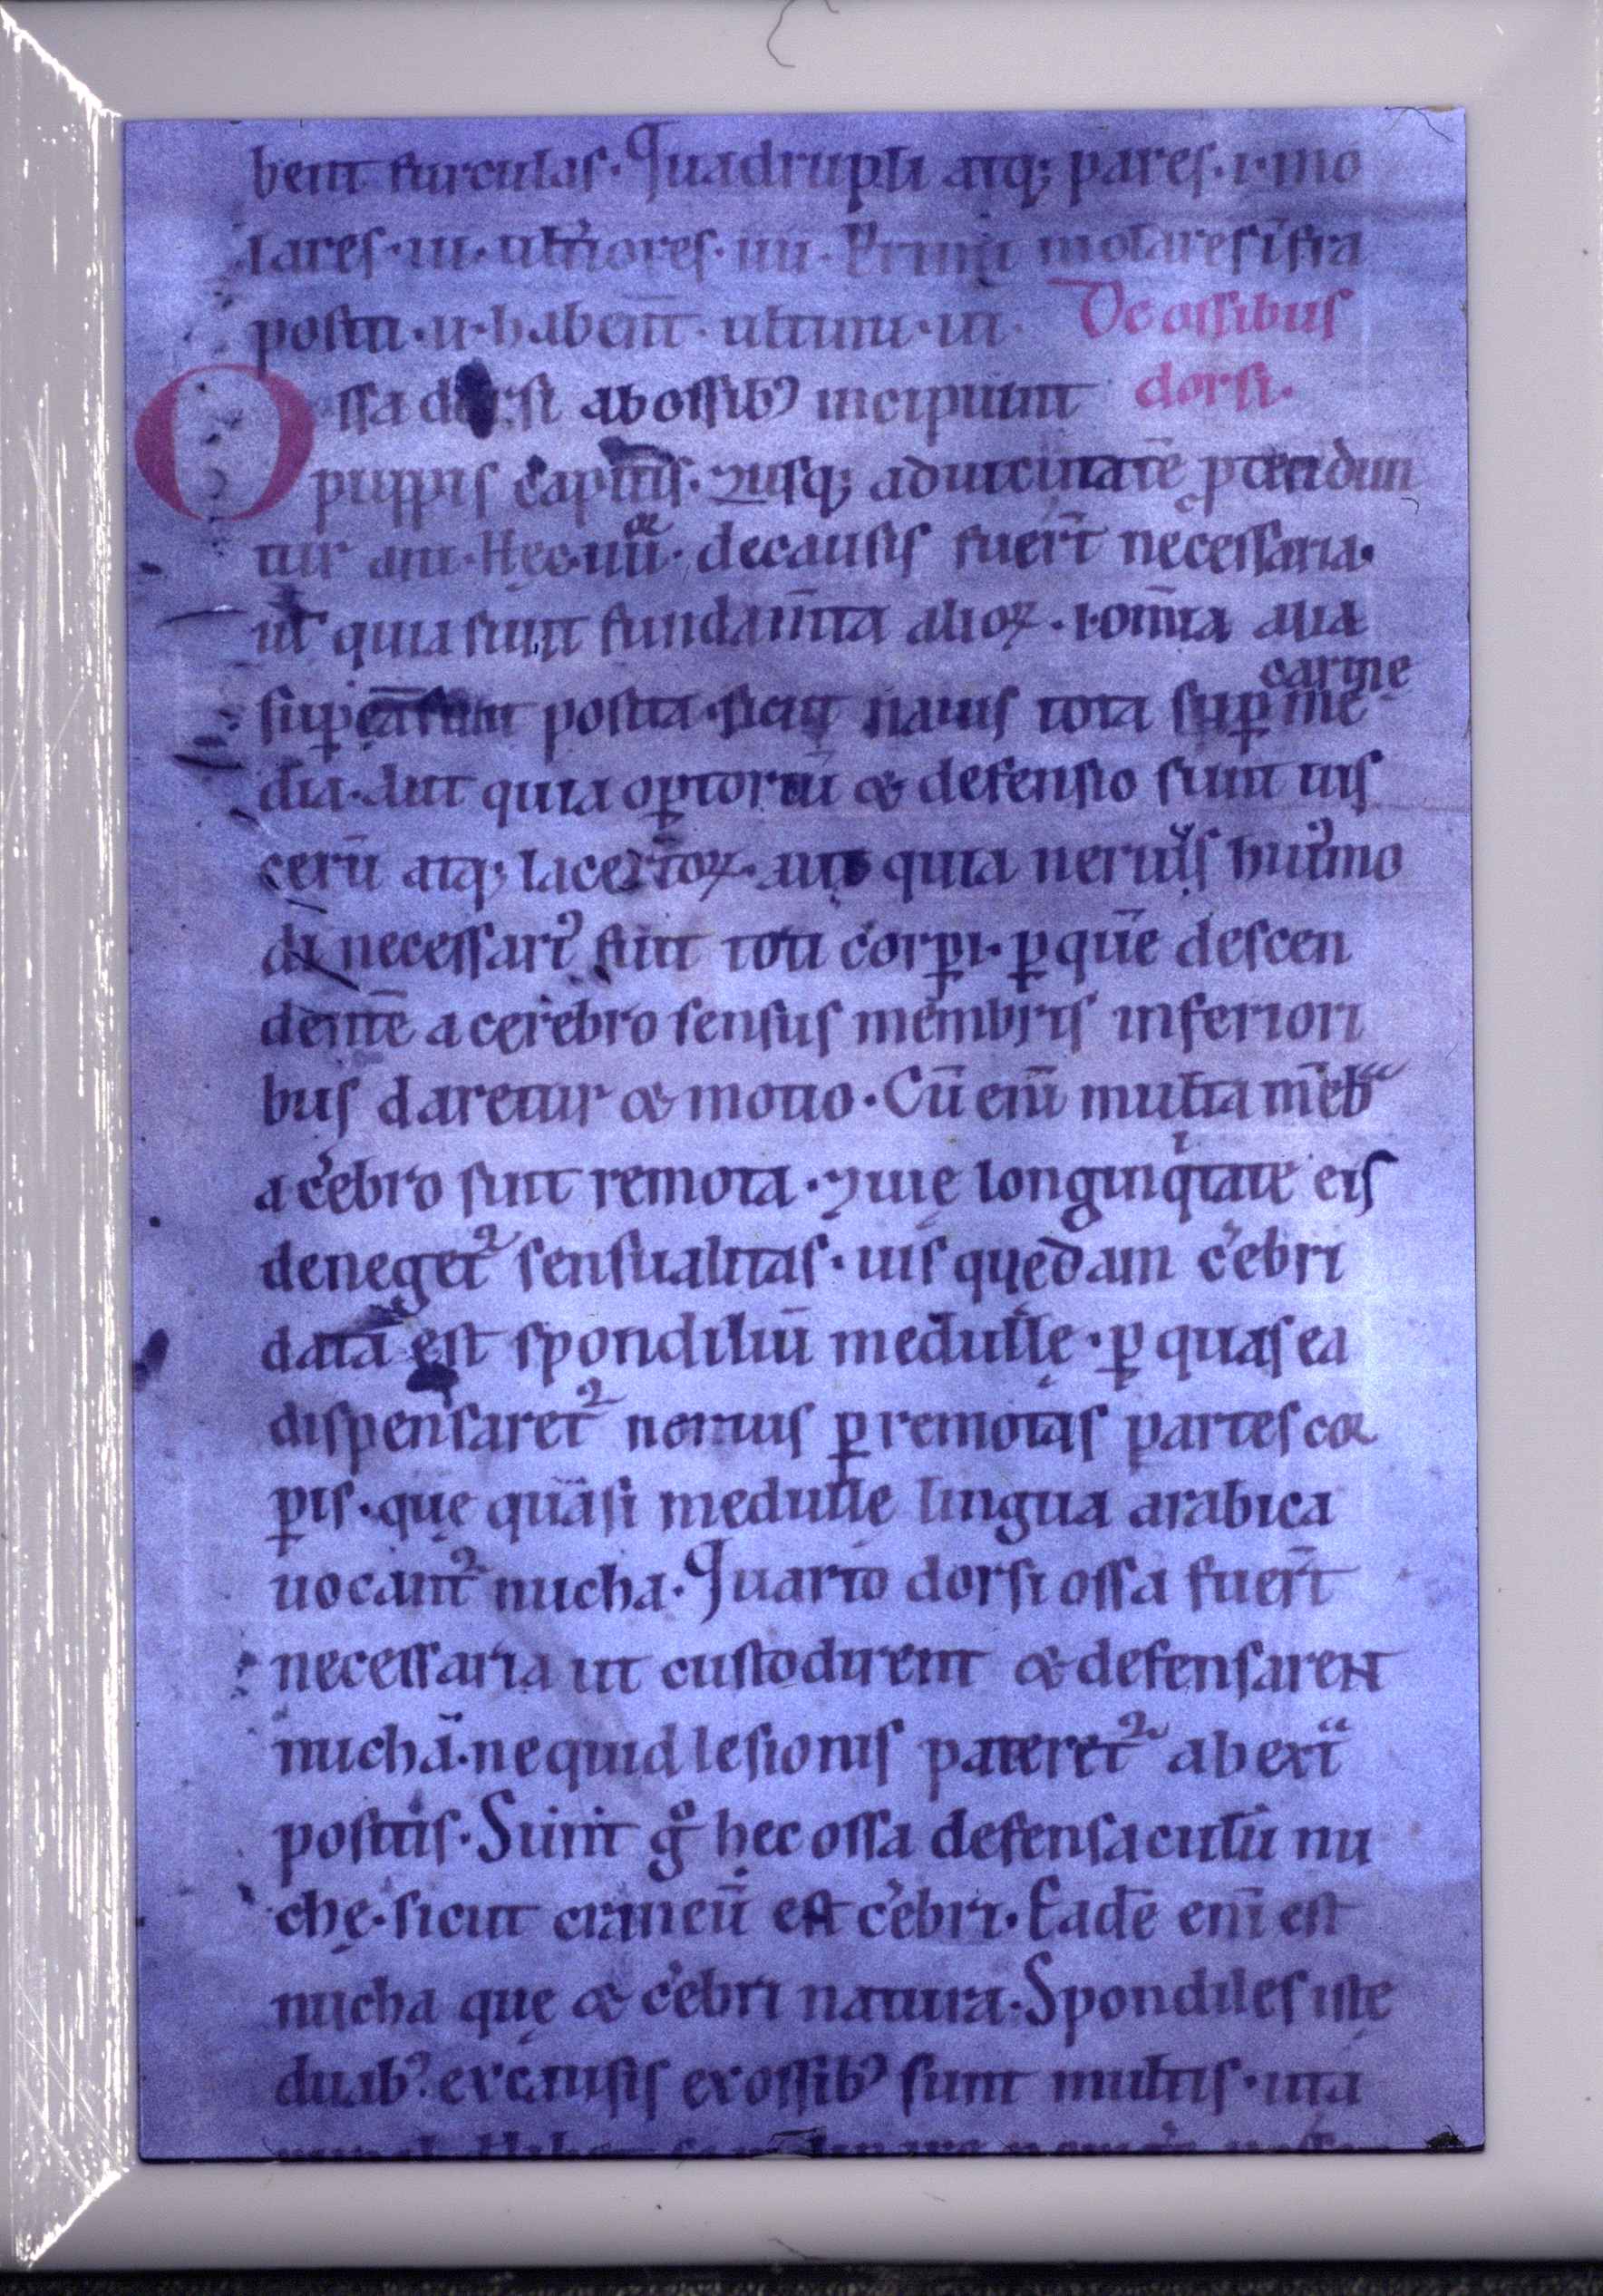 bent furculas. Quadrupli atq; pares .i. mo
lares .iii. ult̄iores .iiii. Primi molares īfra
positi .ii. habent̄. ultimi .iii. De ossibus
Ossa dorsi ab ossibꝰ incipiunt dorsi.
puppis capitis. ⁊ usq; ad uicinitatē ptendun
tur ani. Hęc .iiii.or de causis fuer̄t necessaria.
ut̄ quia sunt fundam̄ta alioꝝ .i. om̄ia alia
suꝑ posita sicut nauis tota suꝑ carine
me
dia. Aut quia oꝑtoriū & defensio sunt uis
cerū atq; lacertoꝝ. aut quia neruis huiꝰmo
di necessariꝰ sunt toti corꝑi. ꝑ quē descen
dentē a cerebro sensus membris inferiori
bus daretur & motio. Cū enī multa m̄ebᵃ
a c̓ebro sunt remota. ⁊ uię longinqⁱtate eis
deneget᷑ sensualitas. uis quędam c̓ebri
data est spondiliū medullę. ꝑ quas ea
dispensaret᷑ neruis ꝑ remotas partes cor
ꝑis. quę quasi medullę lingua arabica
uocant᷑ nucha. Quarto dorsi ossa fuer̄t
necessaria ut custodirent & defensarent
nuchā. ne quid lesionis pateret᷑ ab extᵃ
positis. Sunt gͦ hec ossa defensaculū nu
chę. sicut craneū est c̓ebri. Eadē enī est
nucha quę & c̓ebri natura. Spondiles istę
duabꝰ ex causis ex ossibꝰ sunt multis. uta